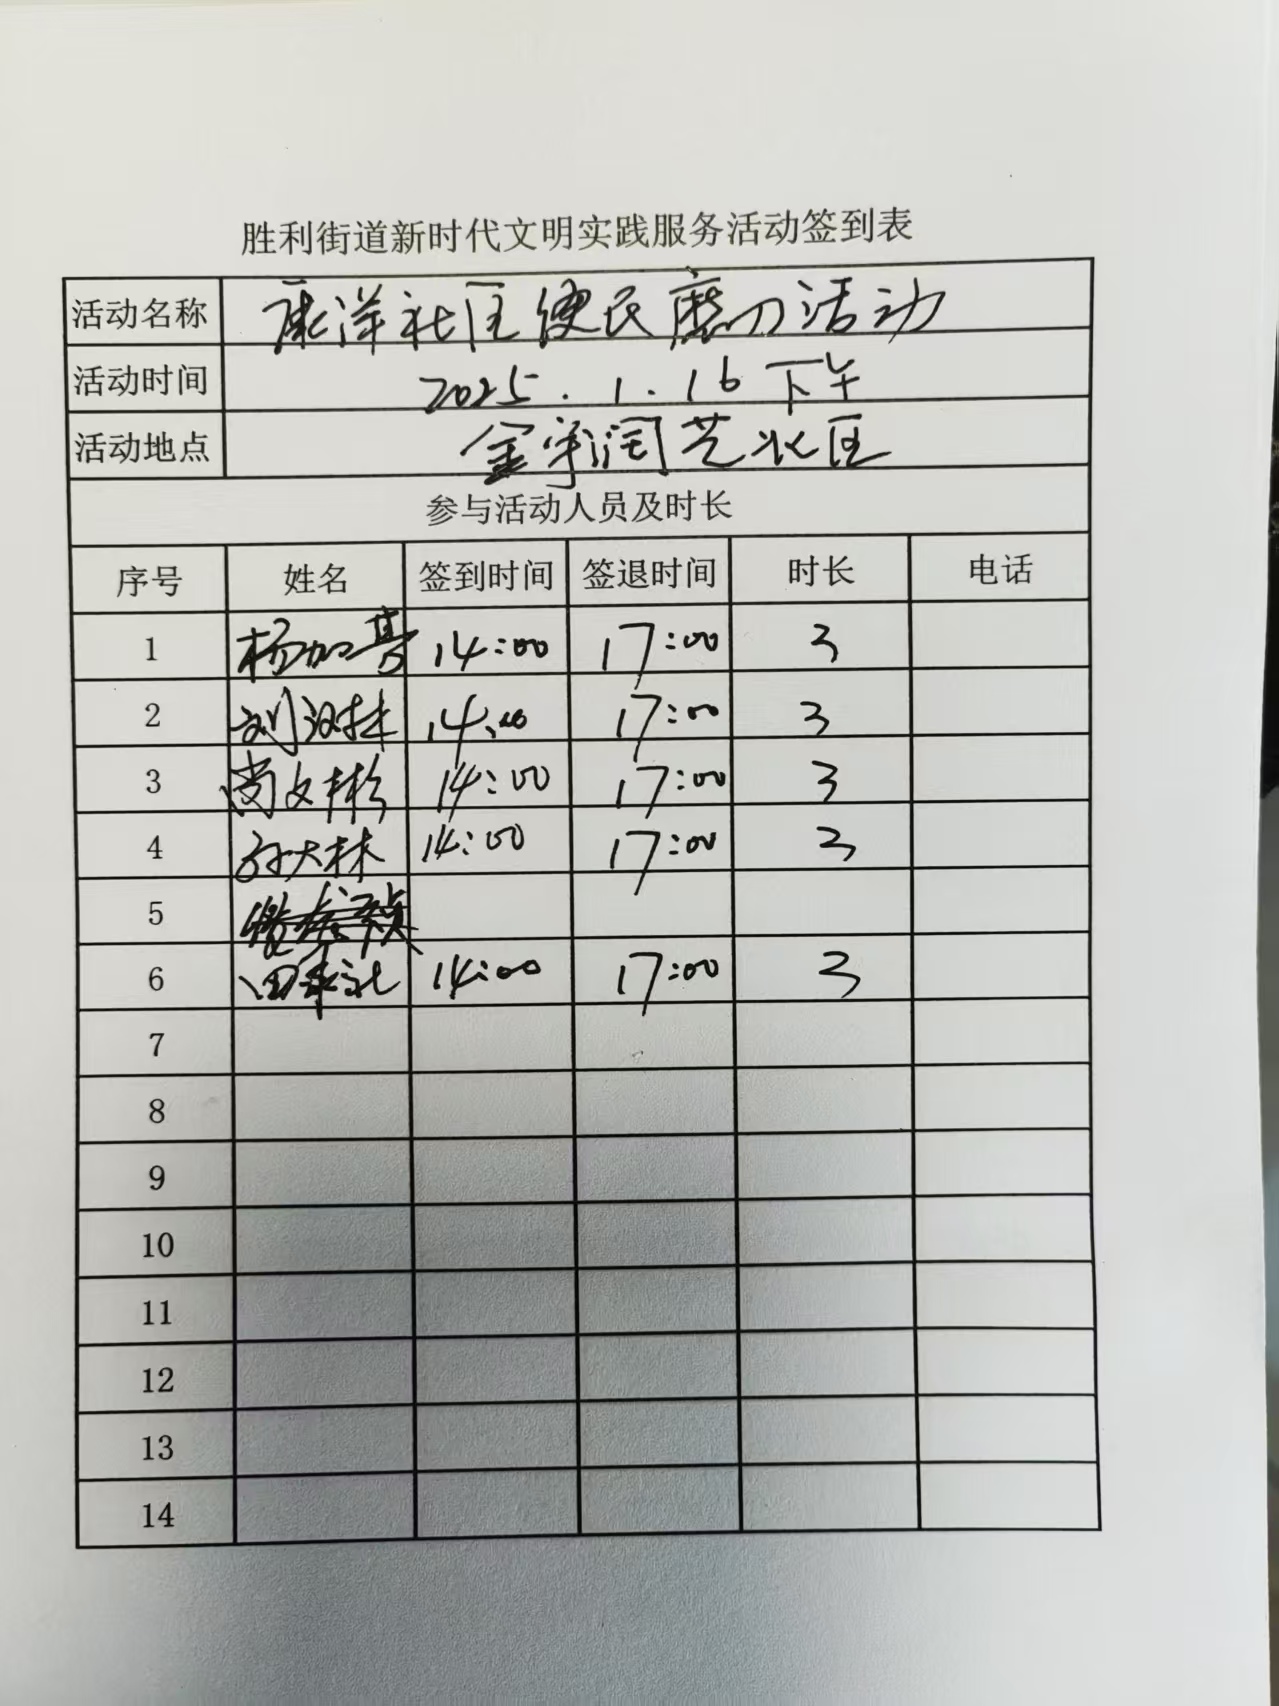 胜利街道新时代文明实践服务活动签到表
活动名称 康洋社区便民磨刀活动
活动时间 2025.1.16 下午
活动地点 金宇润艺北区
参与活动人员及时长
序号 姓名 签到时间 签退时间 时长 电话
1 杨加 14:00 17:00 3
2 刘汉林 14:00 17:00 3
3 尚文彬 14:00 17:00 3
4 孙大林 14:00 17:00 3
5
6 田 14:00 17:00 3
7
8
9
10
11
12
13
14